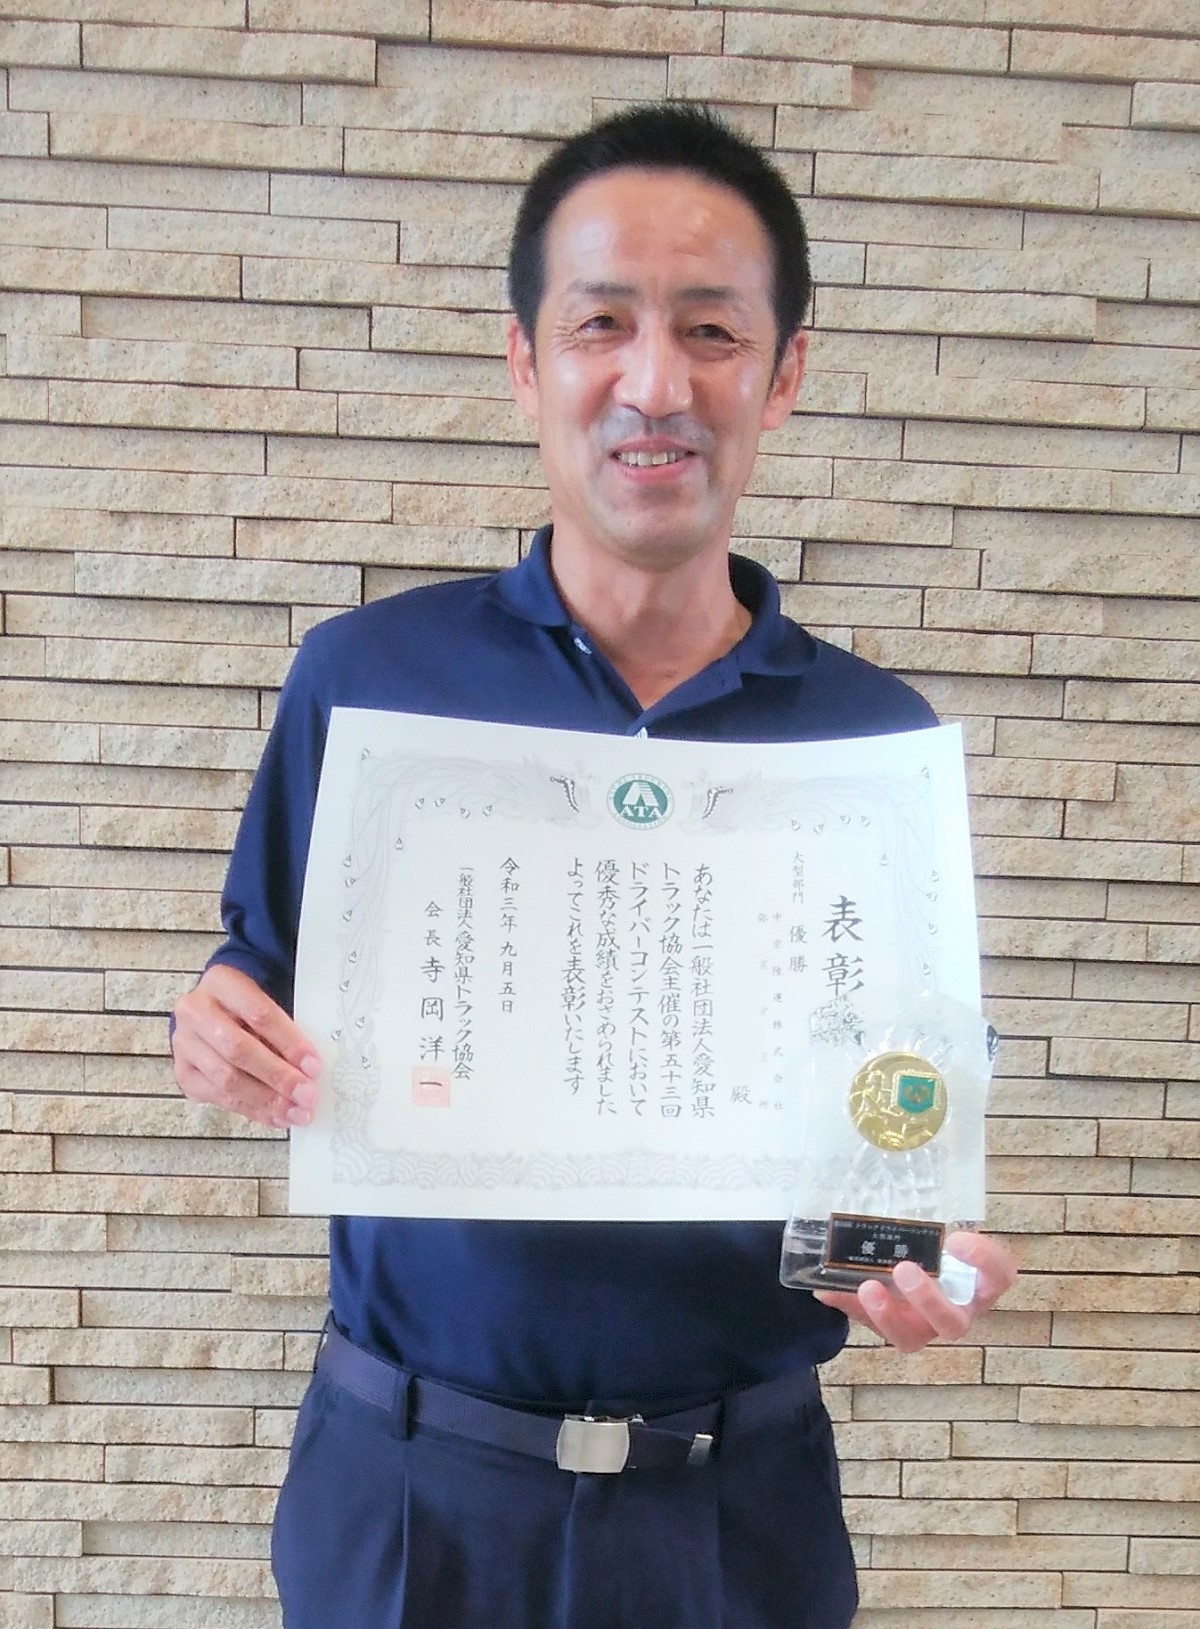 表彰
大型部門 優勝
中京陸運株式会社
弥富営業所
殿
あなたは一般社団法人愛知県
トラック協会主催の第五十三回
ドライバーコンテストにおいて
優秀な成績をおさめられました
よってこれを表彰いたします
令和三年九月五日
一般社団法人愛知県トラック協会
会長 寺岡洋一
ATA
トラックドライバーコンテスト
大型部門
優勝
一般社団法人